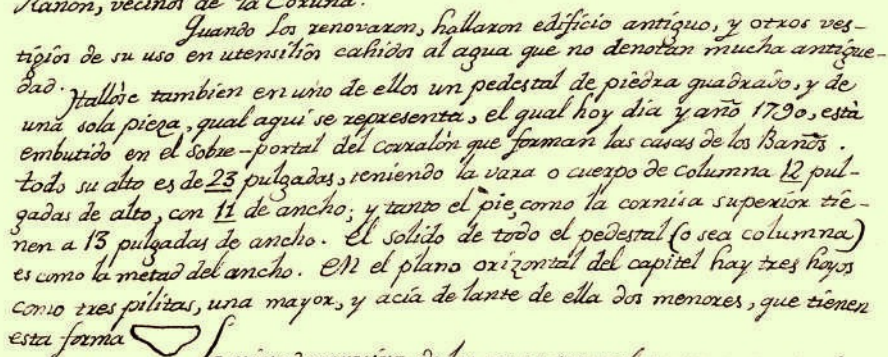 Rañon, vecinos de la Coruña.
Quando los renovaron, hallaron edificio antiguo, y otros ves-
tigios de su uso en utensilios cahidos al agua que no denotan mucha antigue-
dad.
Hallóse tambien en uno de ellos un pedestal de piedra quadrado, y de
una sola pieza, qual aqui se representa, el qual hoy dia y año 1790, està
embutido en el sobre-portal del corralón que forman las casas de los Baños.
todo su alto es de 23 pulgadas, teniendo la vara o cuerpo de columna 12 pul-
gadas de alto, con 11 de ancho; y tanto el pie, como la cornisa superior tie-
nen a 13 pulgadas de ancho. el solido de todo el pedestal (o sea columna)
es como la metad del ancho. En el plano orizontal del capitel hay tres hoyos
como tres pilitas, una mayor, y acia delante de ella dos menores, que tienen
esta forma